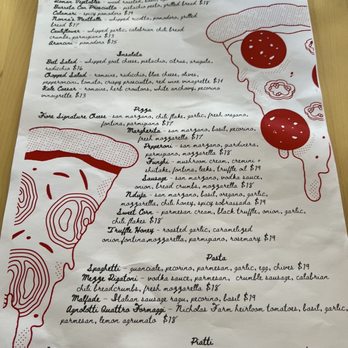 Burrata Con Pepperotta - pistachio pesto, grilled bread $18
Calamari - spicy pomodoro $19
Nonna's Meatballs - whipped ricotta, pomodoro, grilled bread $17
Cauliflower - whipped garlic, calabrian chili bread crumbs, parmigiano $13
Arancini - pomodoro $15
Insalata
Beet Salad - whipped goat cheese, pistachio, citrus, arugula, radicchio $16
Chopped Salad - romaine, radicchio, blue cheese, olives,
pepperoncini, tomato, crispy prosciutto, red wine vinaigrette $14
Kale Caesar - romaine, herb croutons, white anchovy, pecorino
vinaigrette $13
Pizza
Fiore Signature Cheese - san marzano, chili flake, garlic, fresh oregano,
fontina, parmigiano $17
Margherita - san marzano, basil, pecorino,
fresh mozzarella $17
Pepperoni - san marzano, gardinera,
parmigiano, mozzarella $18
Funghi - mushroom cream, cremini +
shiitake, fontina, leeks, truffle oil $19
Sausage - san marzano, vodka sauce,
onion, bread crumbs, mozzarella $18
Nduja - san marzano, basil, oregano, garlic,
mozzarella, chili honey, spicy sobrassada $19
Sweet Corn - parmesan cream, black truffle, onion, garlic,
chili flakes $18
Truffle Honey - roasted garlic, caramelized
onion, fontina, mozzarella, parmigiano, rosemary $19
Pasta
Spaghetti - guanciale, pecorino, parmesan, garlic, egg, chives $19
Mezze Rigatoni - vodka sauce, parmesan, crumble sausage, calabrian
chili breadcrumbs, fresh mozzarella $18
Malfade - Italian sausage ragu, pecorino, basil $19
Agnolotti Quattro Formaggi - Nicholas Farm heirloom tomatoes, basil, garlic,
parmesan, lemon agrumato $18
Piatti